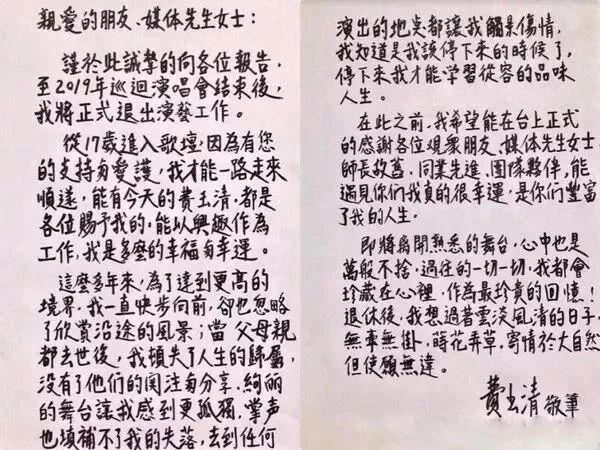 親愛的朋友、媒体先生女士：
謹於此誠摯的向各位報告，
至2019年巡迴演唱會結束後，
我將正式退出演藝工作。
從17歲進入歌壇，因為有您
的支持与愛護，我才能一路走來
順遂，能有今天的費玉清，都是
各位賜予我的，能以興趣作為
工作，我是多麼的幸福与幸運。
這麼多年來，為了達到更高的
境界，我一直快步向前，卻也忽略
了欣賞沿途的風景；當父母親
都去世後，我頓失了人生的歸屬，
没有了他們的関注与分享，絢麗
的舞台讓我感到更孤獨，掌声
也填補不了我的失落，去到任何
演出的地点都讓我觸景傷情，
我知道是我該停下來的時候了，
停下來我才能學習從容的品味
人生。
在此之前，我希望能在台上正式
的感謝各位觀衆朋友、媒体先生女士、
師長故舊、同業先進、團隊夥伴，能
遇見你們我真的很幸運，是你們豐富
了我的人生。
即將離開熟悉的舞台，心中也是
萬般不捨，過往的一切一切，我都會
珍藏在心裡，作為最珍貴的回憶！
退休後，我想過著雲淡風清的日子，
無牽無掛，蒔花弄草，寄情於大自然
但使願無違。
費玉清 敬筆